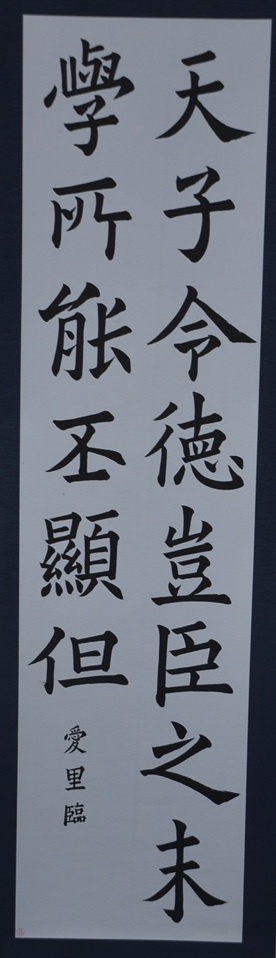 天子令德豈臣之末
學所能丕顯但
愛里臨